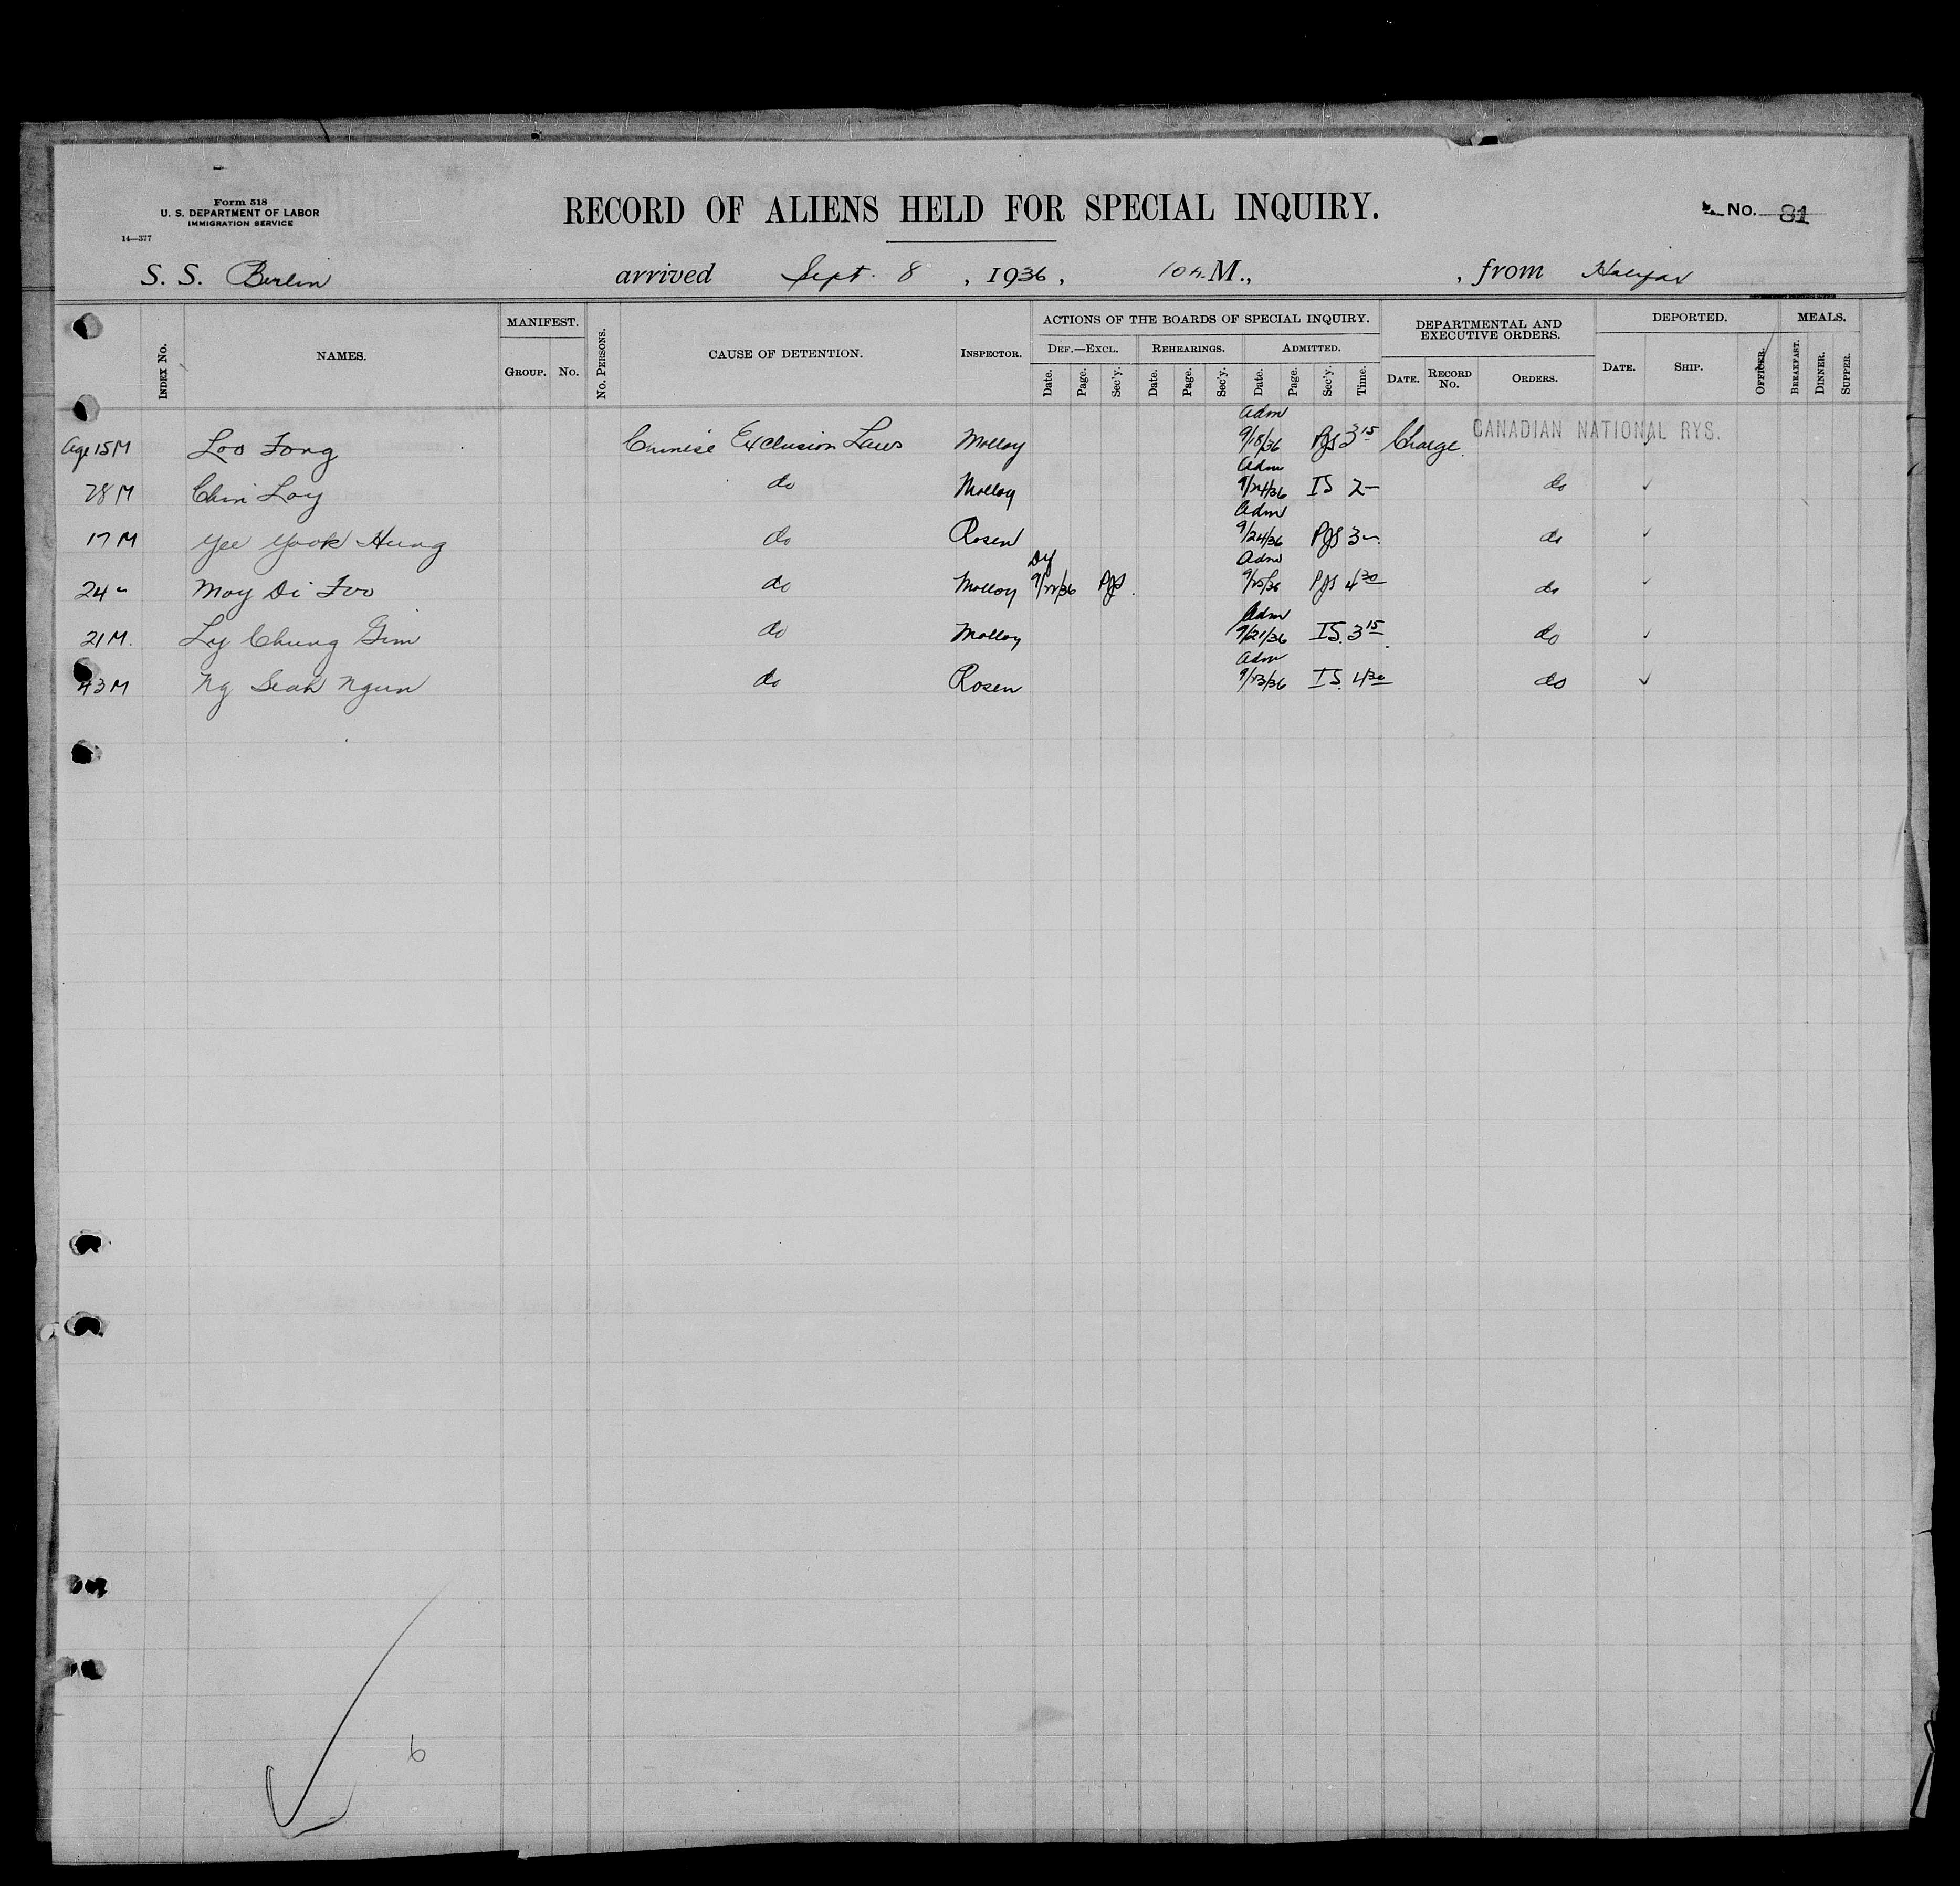 Form 518
U. S. DEPARTMENT OF LABOR
IMMIGRATION SERVICE
14—377
RECORD OF ALIENS HELD FOR SPECIAL INQUIRY.
No. 81
S. S. Berlin arrived Sept. 8, 1936, 10 A.M., , from Halifax
INDEX No. NAMES. MANIFEST. GROUP. No. No. PERSONS. CAUSE OF DETENTION. INSPECTOR. ACTIONS OF THE BOARDS OF SPECIAL INQUIRY. DEF.—EXCL. Date. Page. Sec'y. REHEARINGS. Date. Page. Sec'y. ADMITTED. Date. Page. Sec'y. Time. DEPARTMENTAL AND EXECUTIVE ORDERS. DATE. RECORD No. ORDERS. DEPORTED. DATE. SHIP. OFFICER. MEALS. BREAKFAST. DINNER. SUPPER.
Age 15 M Loo Fong Chinese Exclusion Laws Molloy Adm 9/18/36 PJS 3 15 Charge CANADIAN NATIONAL RYS.
28 M Chin Loy do Molloy Adm 9/24/36 IS 2— do ✓
17 M Yee Yook Hung do Rosen Adm 9/24/36 PJS 3— do ✓
24 " Moy Di Foo do Molloy 9/22/36 PJS. Adm 9/25/36 PJS 4 30 do ✓
21 M. Ly Chung Gim do Molloy Adm 9/21/36 IS. 3 15 do ✓
43 M Ng Seah Ngun do Rosen Adm 9/23/36 IS. 4 30 do ✓
6